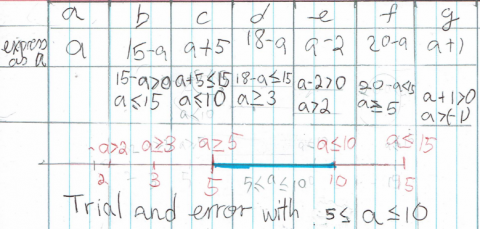 a b c d e f g
express as a a 15-a a+5 18-a a-2 20-a a+1
15-a>0 a+5≤15 18-a≤15 a-2>0 20-a≤15 a+1>0
a≤15 a≤10 a≥3 a>2 a≥5 a>(-1)
a>2 a≥3 a≥5 a≤10 a≤15
2 3 5 5≤a≤10 10 15
Trial and error with 5≤a≤10